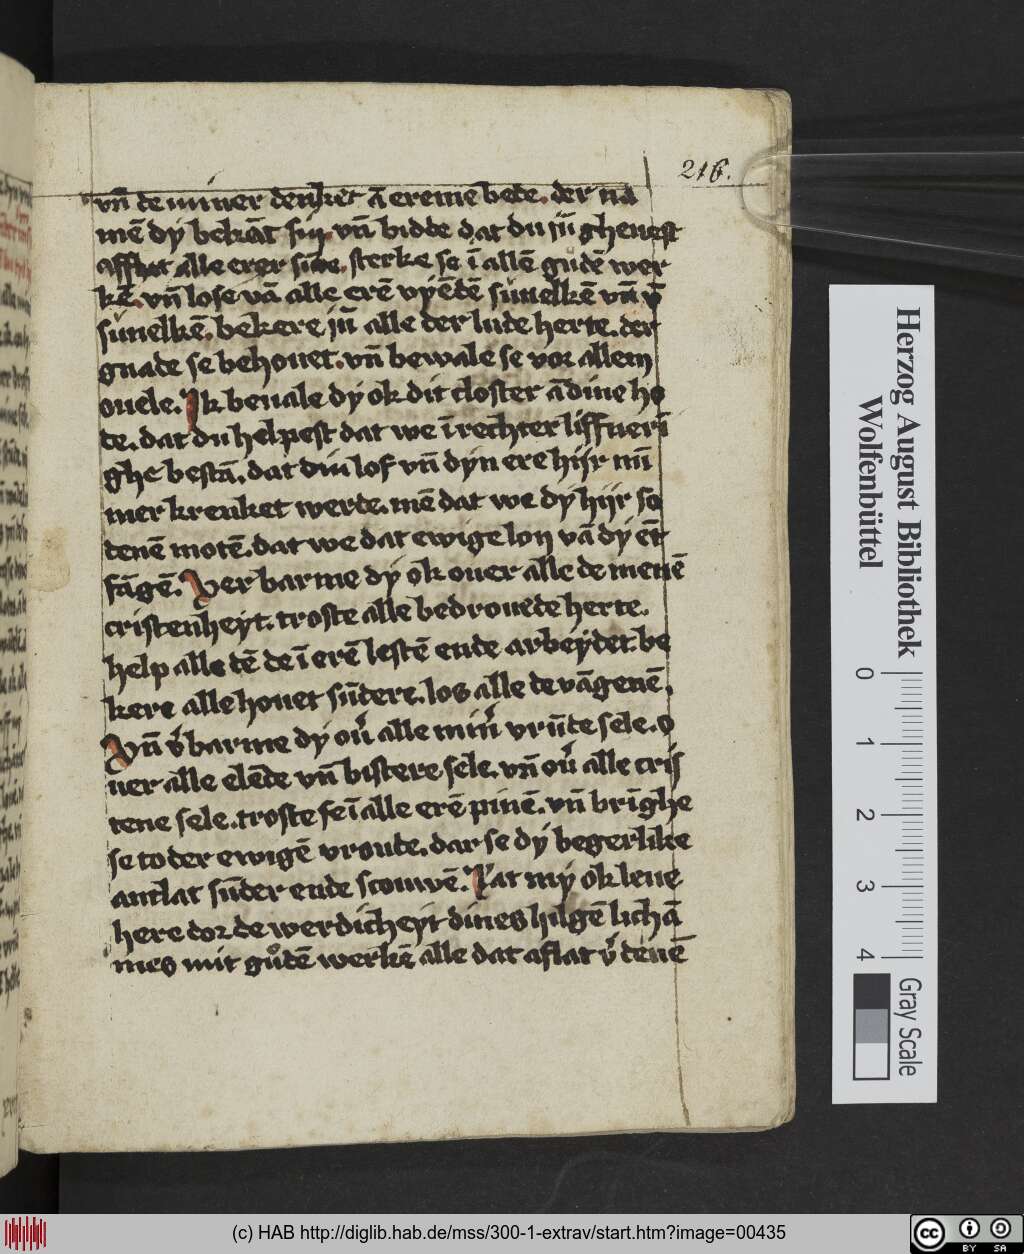 216.
vn̄ de mÿner denket ā ereme bede. der na
mē dy bekāt sin. vn̄ bidde dat du jn̄ gheuest
afflat alle erer sūde. sterke se ī allē gudē wer
kē. vn̄ lose vā alle erē vyēdē sunelkē vn̄ v̄
sunelkē. bekere jn̄ alle der lude herte. der
gnade se behouet. vn̄ bewale se vor allem
ouele. Ik beuale dy ok dit closter ā dine ho
de. dat du helpest dat we ī rechter liffneri
ghe bestā. dat din lof vn̄ dyn ere hijr nū
mer krenket werde. mē dat we dy hijr so
denē motē. dat we dat ewige lon vā dy ēt
fāgē. Ver barme dy ok ouer alle de menē
cristenheyt. troste alle bedrouede herte.
help alle dē de ī erē lestē ende arbeydet. be
kere alle houet sūdere. los alle de vāgenē.
Vn̄ v̓barme dy ou̓ alle min̓ vrūde sele. o
uer alle elēde vn̄ bistere sele. vn̄ ou̓ alle cris
tene sele. troste se ī alle erē pinē. vn̄ brīghe
se to der ewigē vroude. dar se dy begerlike
antlat sūder ende scouwē. Lat my ok leue
here dor de werdicheyt dines hilgē lichā
mes mit gůdē werkē alle dat aflat v̓denē
Herzog August Bibliothek
Wolfenbüttel
0 1 2 3 4
Gray Scale
(c) HAB http://diglib.hab.de/mss/300-1-extrav/start.htm?image=00435
cc BY SA